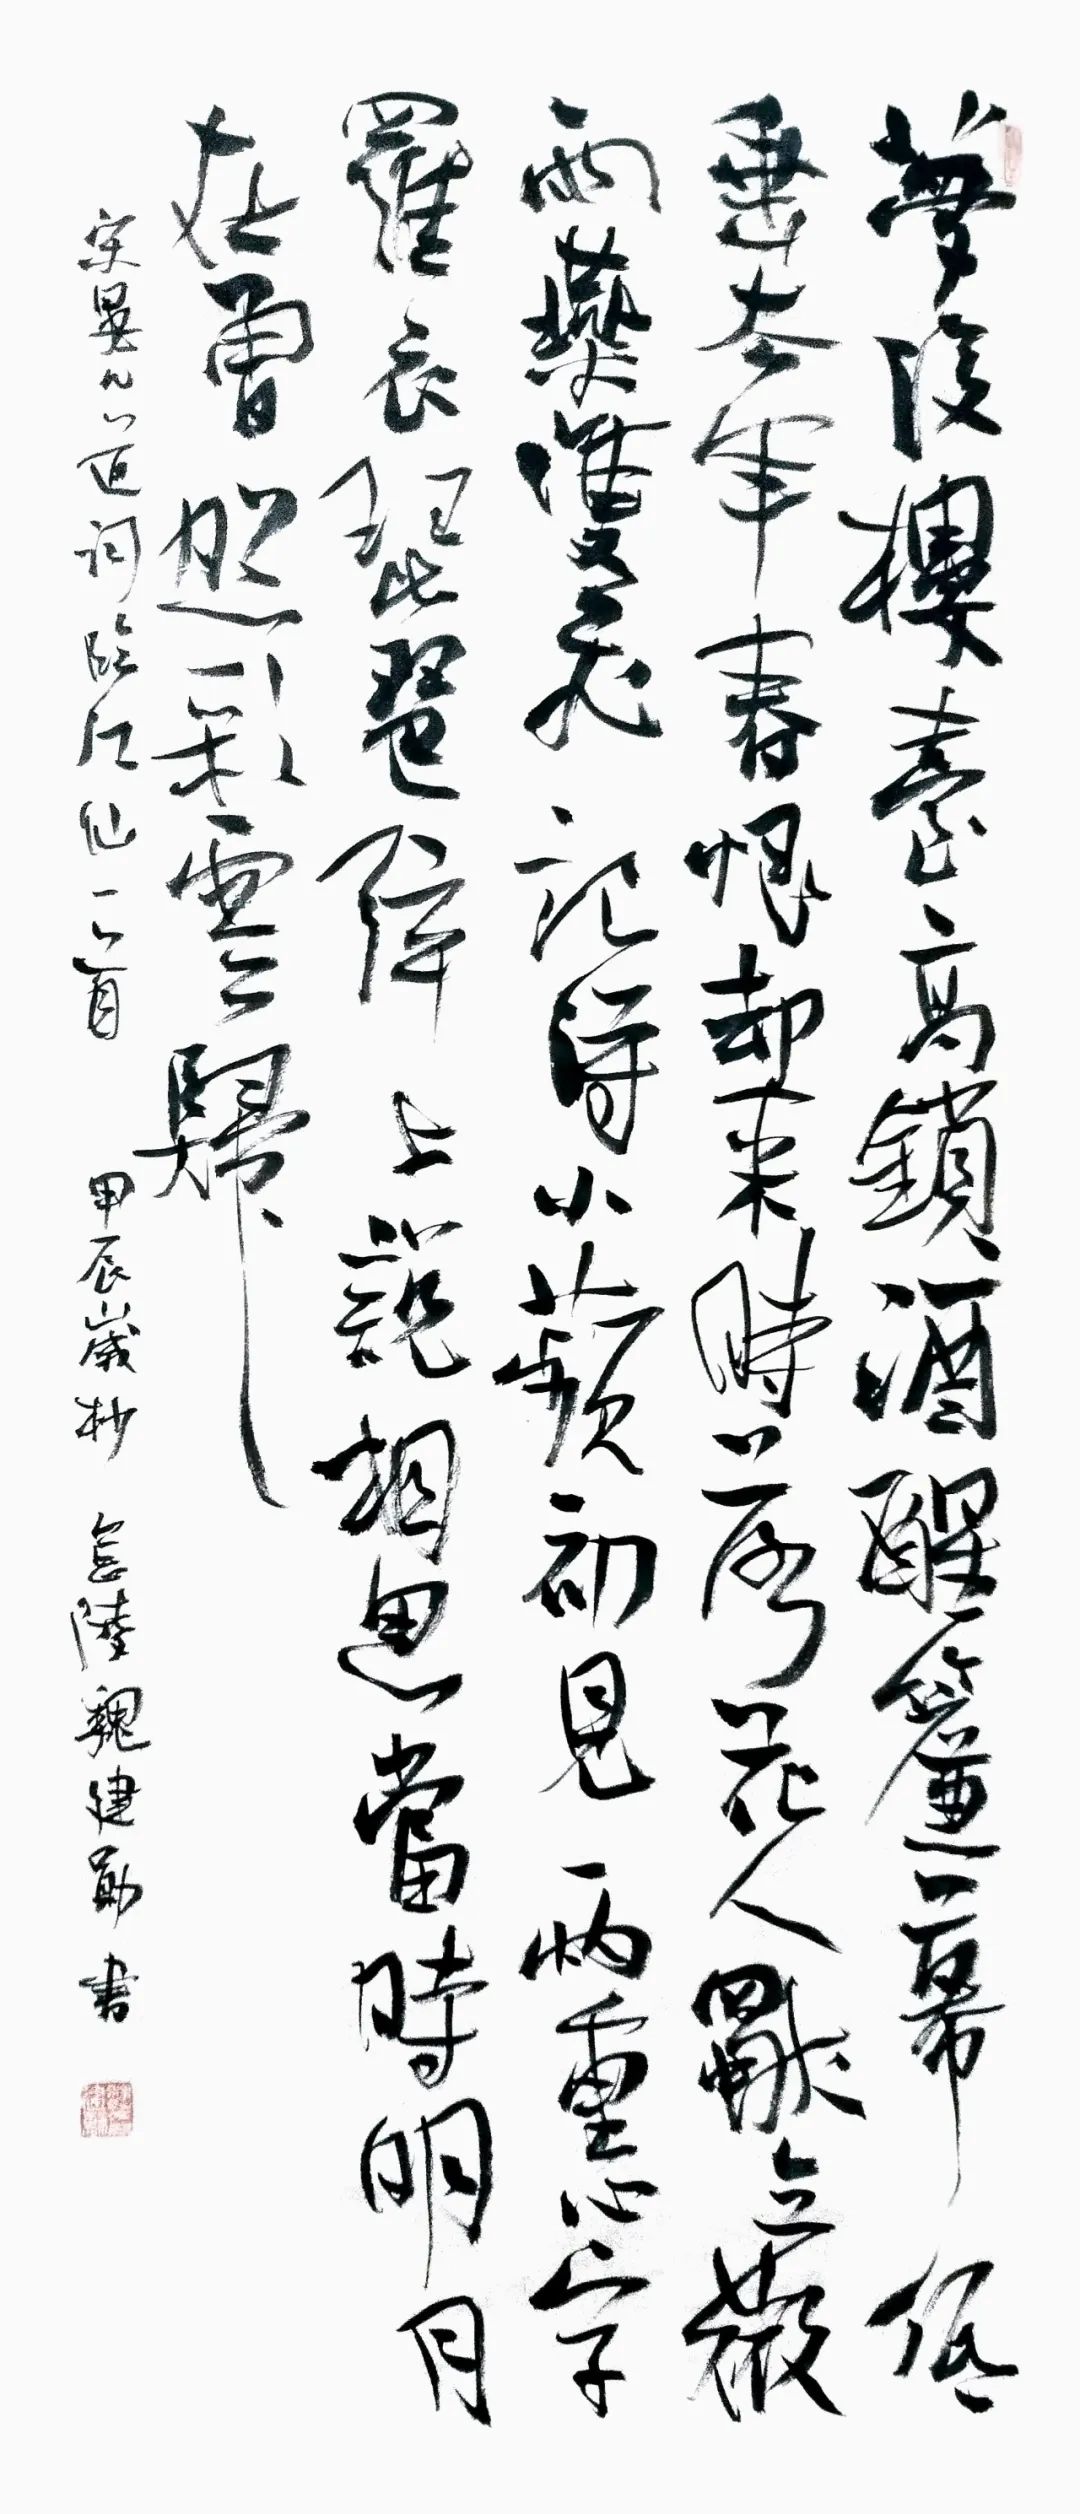 夢後樓臺高鎖酒醒簾幕低
垂去年春恨却来時落花人獨立微
雨燕雙飛記得小蘋初見兩重心字
羅衣琵琶弦上說相思當時明月
在曾照彩雲歸
宋晏几道詞臨江仙一首 甲辰歲杪 金陵魏建勛書